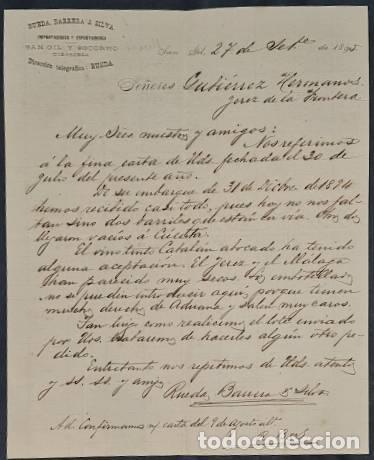 RUEDA, BARRERA & SILVA
IMPORTADORES Y EXPORTADORES
SAN GIL Y SOCORRO
COLOMBIA
Dirección telegráfica: RUEDA
San Gil, 27 de Setbre de 1895
Señores Gutiérrez Hermanos
Jerez de la Frontera
Muy Sres nuestros y amigos:
Nos referimos
á la fina carta de Uds. fechada el 30 de
julio del presente año.
De su embarque de 31 de Dicbre de 1894
hemos recibido casi todo, pues hoy no nos fal-
tan sino dos barriles que están en via. Otros dos
llegaron vacíos á Cúcuta.
El vino tinto Catalán abocado ha tenido
alguna aceptación. El Jerez y el Málaga
han parecido muy secos. Los embotellados
no se pueden introducir aquí, porque tienen
mucho derecho de Aduana y salen muy caros.
Tan luego como realicemos el lote enviado
por Uds. trataremos de hacerles algún otro pe-
dido.
Entretanto nos repetimos de Uds. atentos
y ss. ss. y amigos
Rueda, Barrera & Silva
Ad. Confirmamos n/ carta del 9 de Agosto ult.
todocoleccion.net